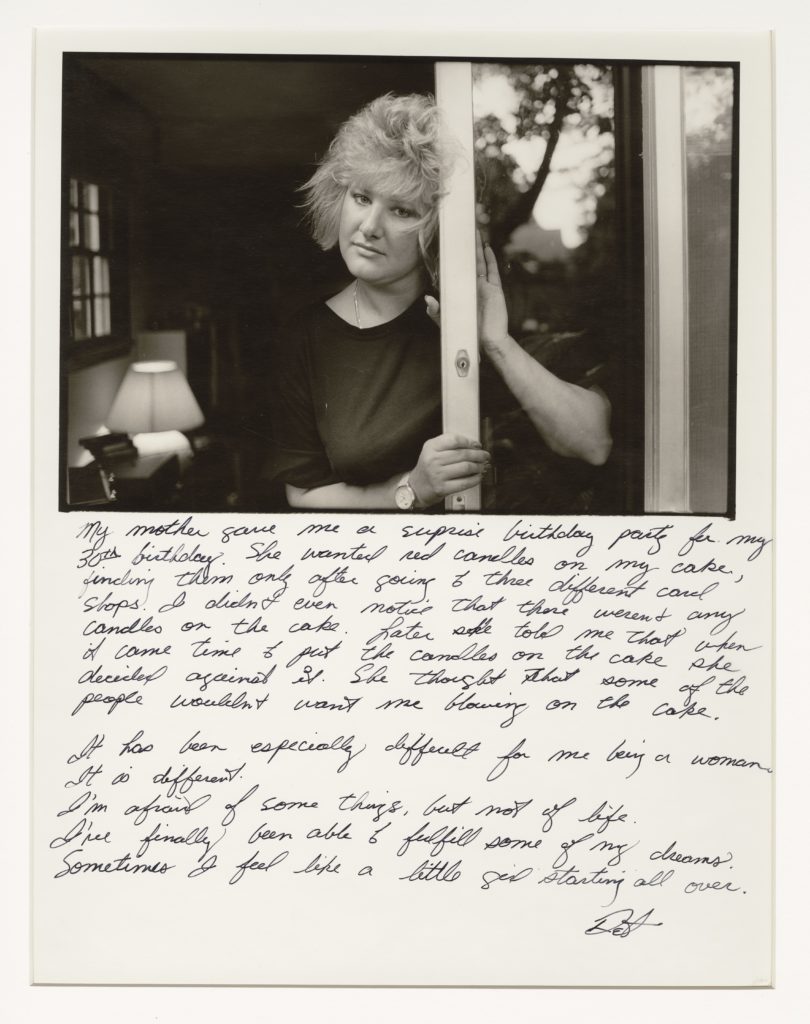 My mother gave me a suprise birthday party for my
30th birthday. She wanted red candles on my cake,
finding them only after going to three different card
shops. I didn't even notice that there weren't any
candles on the cake. Later she told me that when
it came time to put the candles on the cake she
decided against it. She thought that some of the
people wouldn't want me blowing on the cake.
It has been especially difficult for me being a woman.
It is different.
I'm afraid of some things, but not of life.
I've finally been able to fulfill some of my dreams.
Sometimes I feel like a little girl starting all over.
Deb